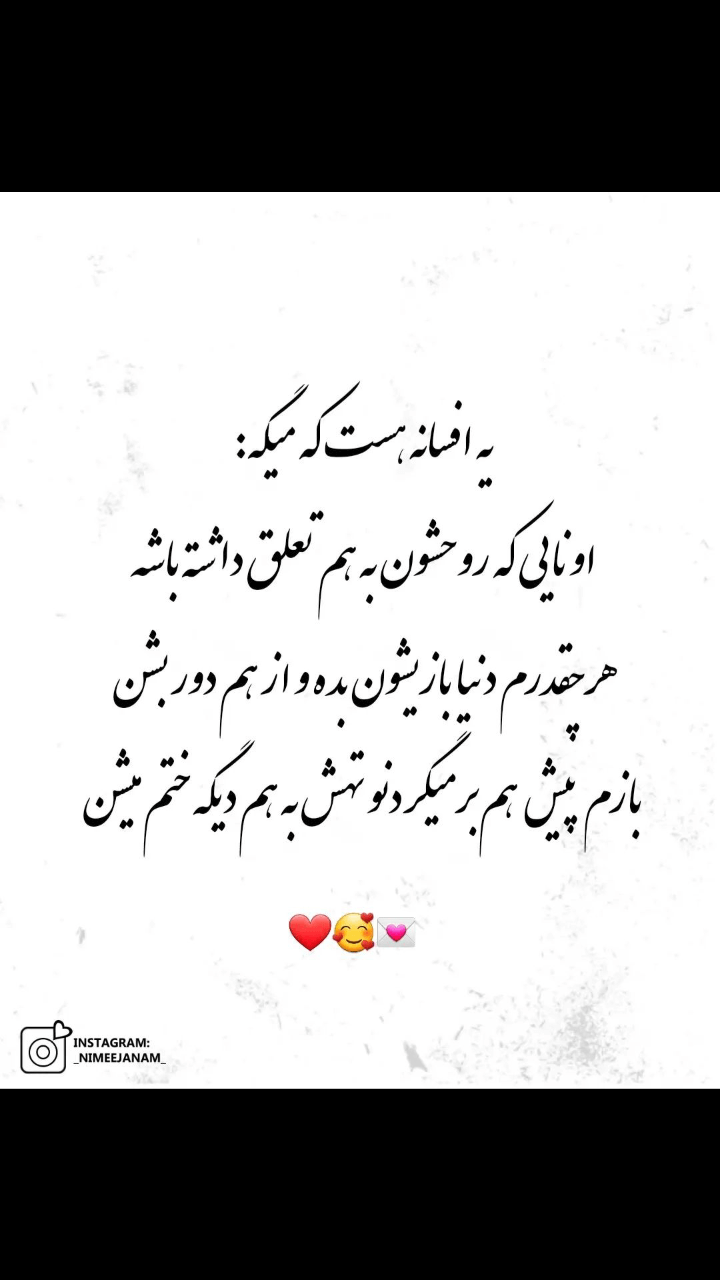 یه افسانه هست که میگه:
اونایی که روحشون به هم تعلق داشته باشه
هرچقدرم دنیا بازیشون بده و از هم دور بشن
بازم پیش هم برمیگردنو تهش به هم دیگه ختم میشن
❤️🥰💌
INSTAGRAM:
_NIMEEJANAM_